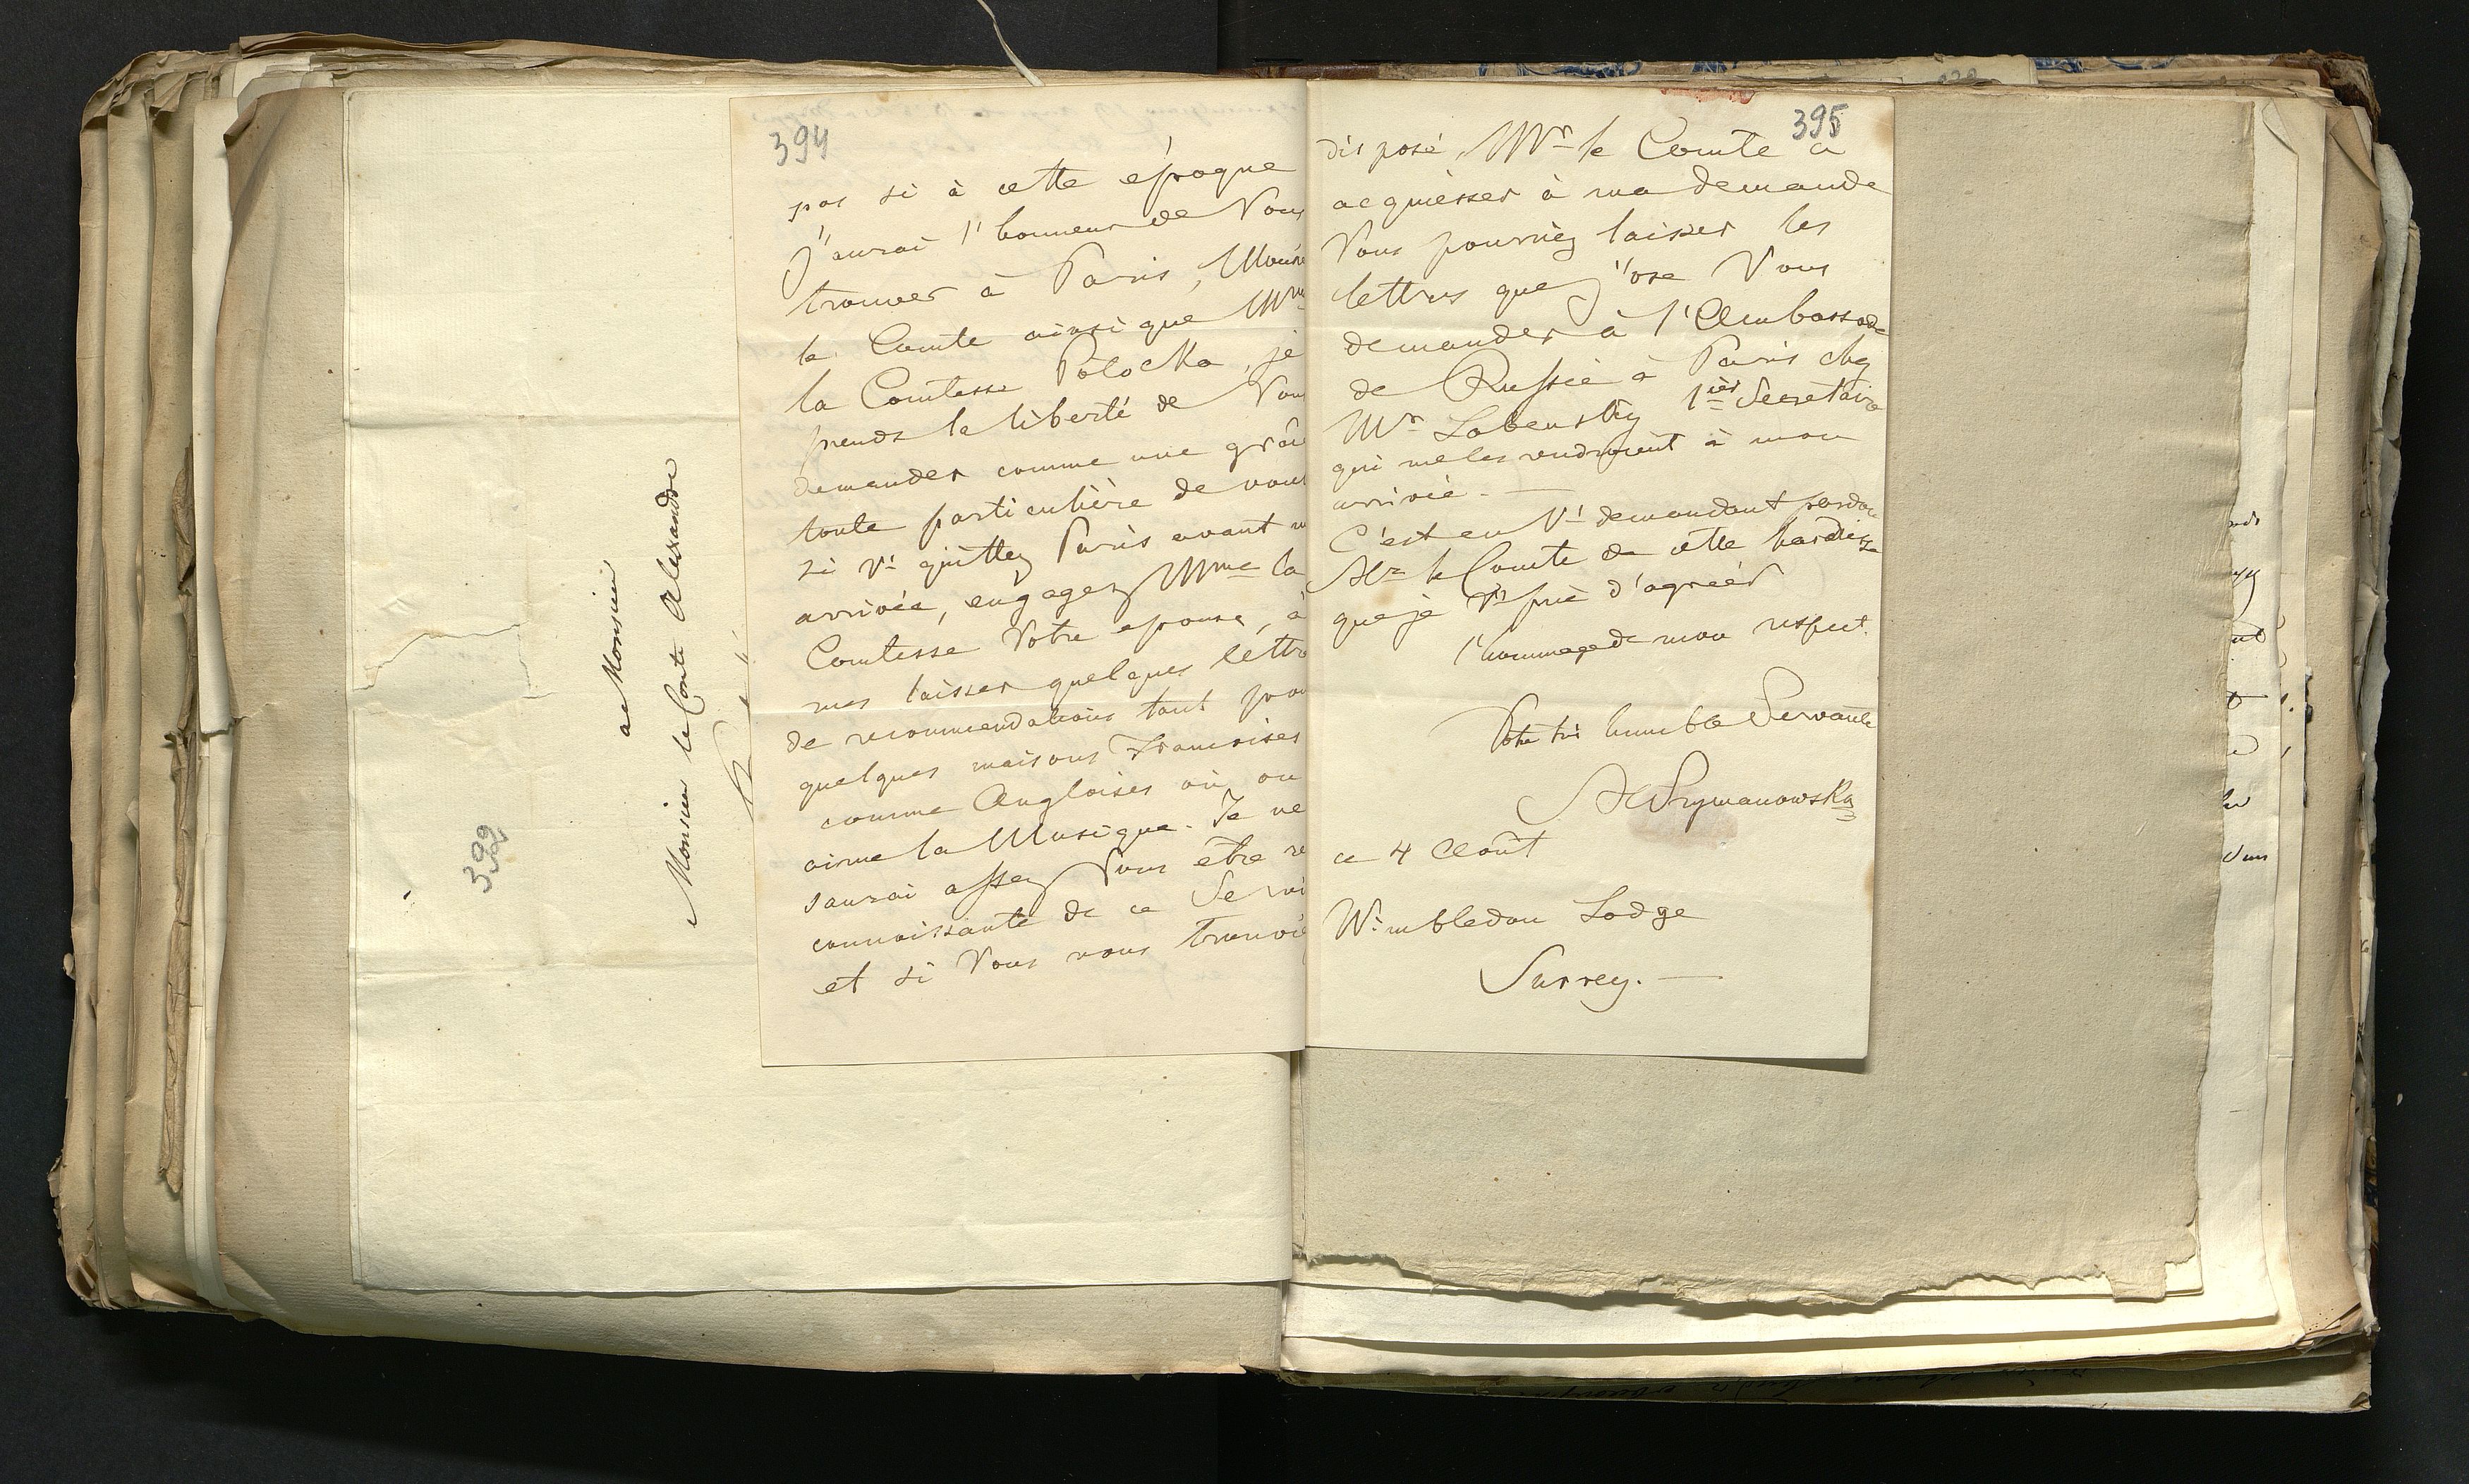 394
pas si à cette époque
J'aurai l'honneur de Vous
trouver à Paris,
le Comte ainsi que Mme
la Comtesse Potocka, je
prends la liberté de Vous
demander comme une grâ
toute particulière de vous
si Vs quittez Paris avant m
arrivée, engagez Mme la
Comtesse Votre epouse, à
mes laisser quelques lettre
de recommendations tant pour
quelques maisons Francoises
comme Angloises où on
aime la Musique. Je ne
saurai assez Vous être re
connoissante de ce Servi
et si Vous vous trouvie
395
disposé, Mr le Comte a
acquiesser à ma demande
Vous pourriez laisser les
lettres que j'ose Vous
demander à l'Ambassade
de Russie à Paris chez
Mr Labenstky 1ier Secretaire
qui me les rendroient à mon
arrivée. —
C'est en Vs demandant pardon
Mr le Comte de cette hardiesse
que je Vs prie d'agréér
l'hommage de mon respect.
Votre très humble Servante
M Szymanowska
ce 4 Août
Wimbledon Lodge
Surrey. —
a Monsieur
Monsieur le Comte Alexandre
399